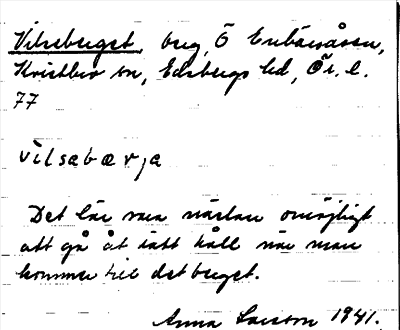 Vilseberget, berg, Ö Enbåsåsen,
Kvistbro sn, Edsbergs hd, Ör. l.
77
vilsabærja
Det lär vara nästan omöjligt
att gå åt rätt håll när man
kommer till det berget.
Anna Larsson 1941.